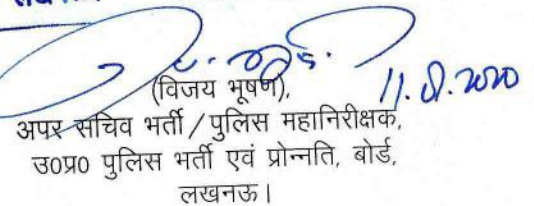 (विजय भूषण),
अपर सचिव भर्ती / पुलिस महानिरीक्षक,
उ0प्र0 पुलिस भर्ती एवं प्रोन्नति, बोर्ड,
लखनऊ।